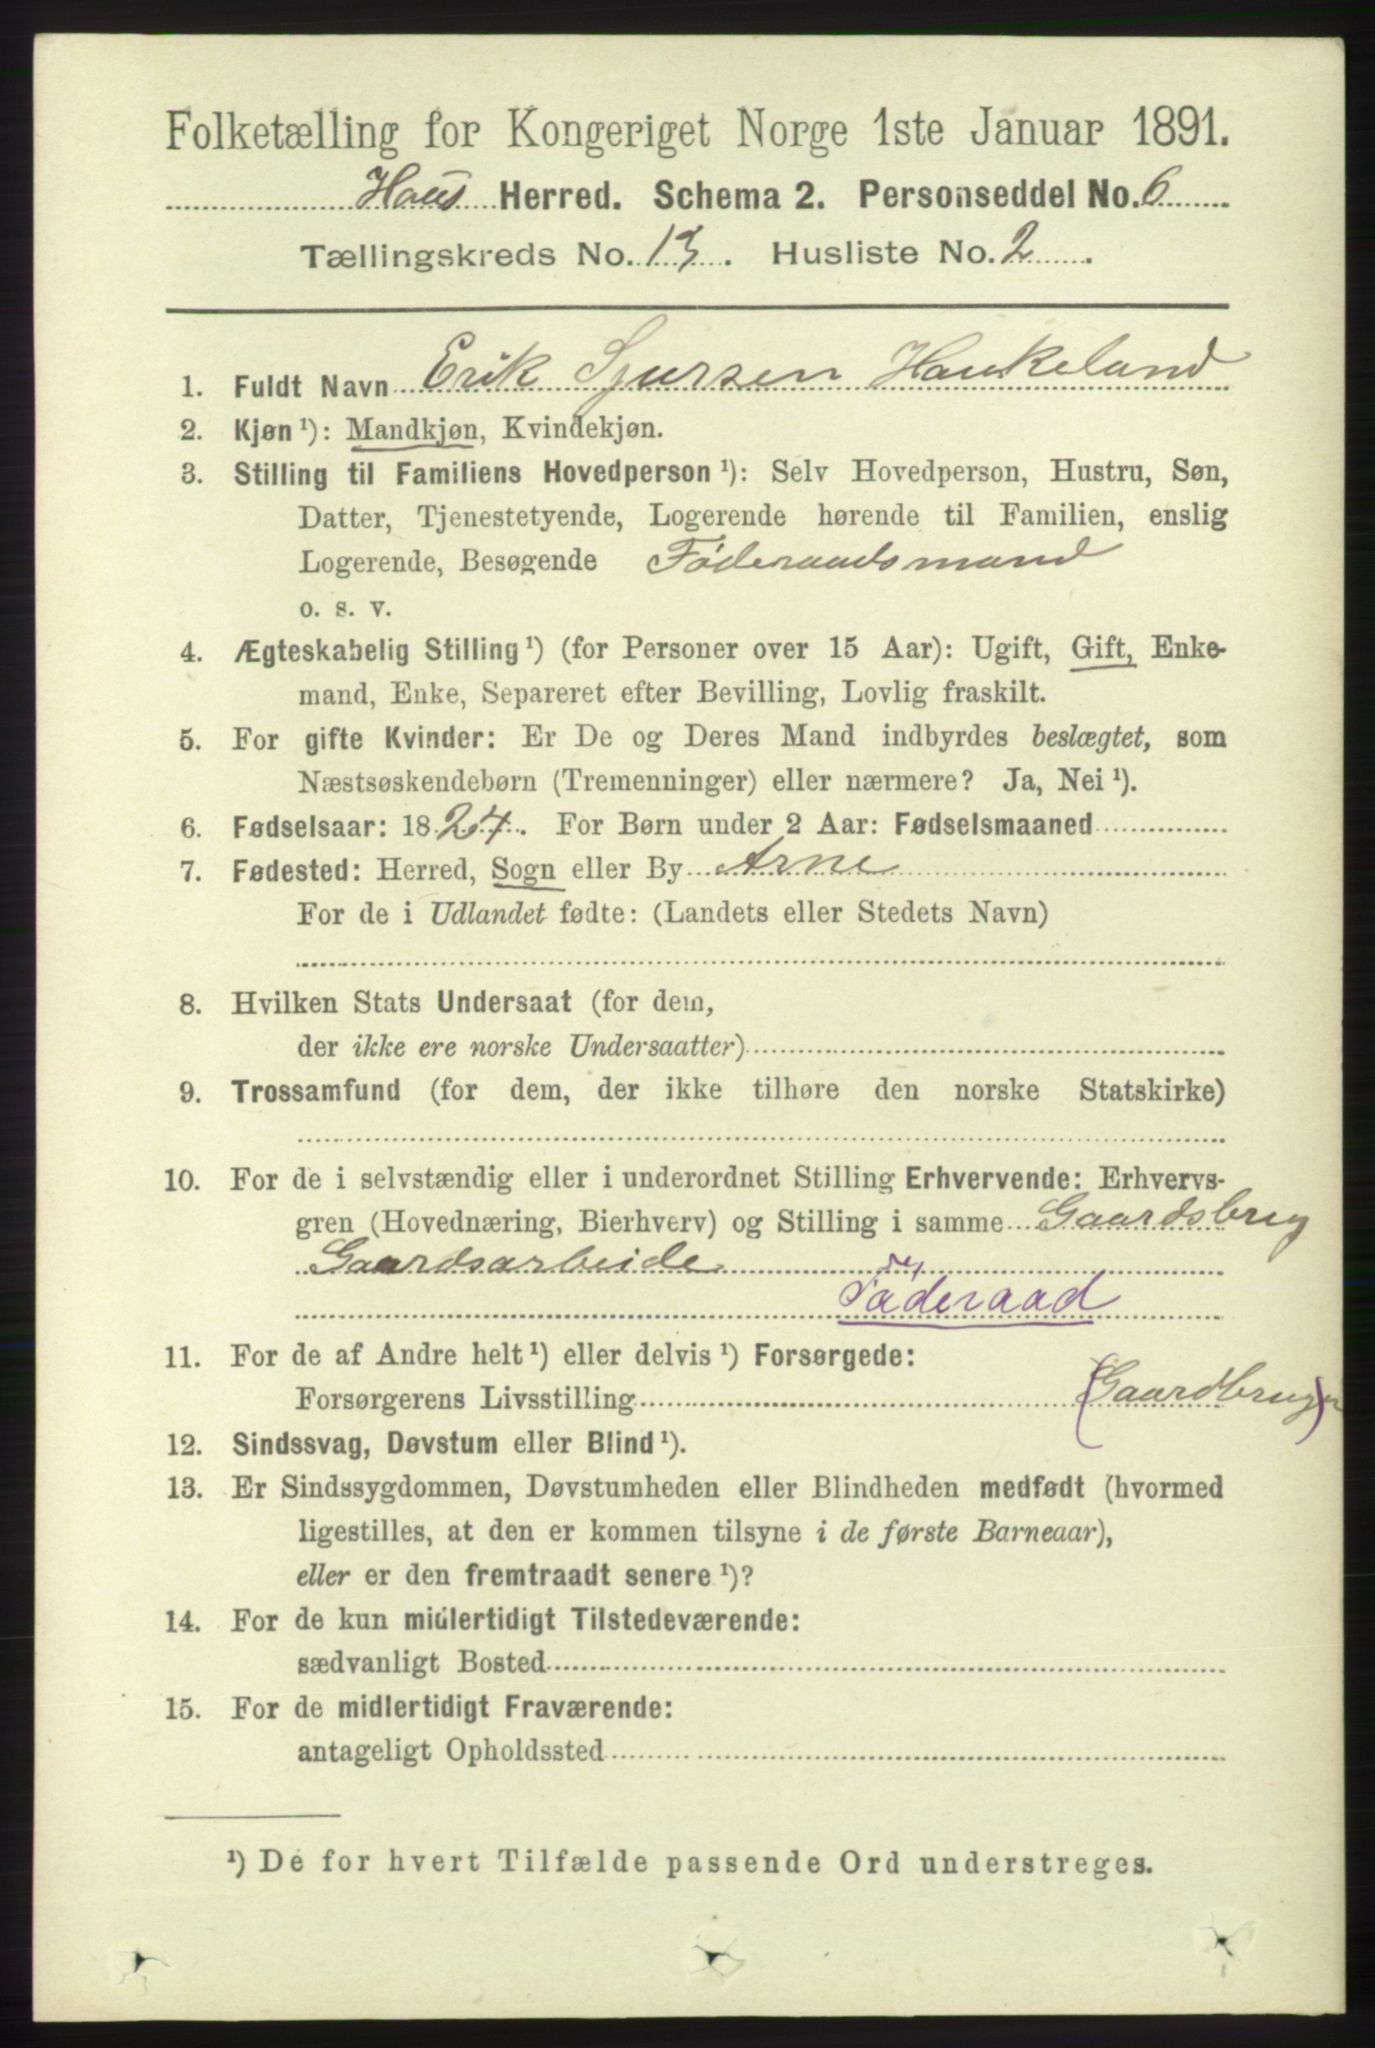 Folketælling for Kongeriget Norge 1ste Januar 1891.
Haus Herred. Schema 2. Personseddel No. 6
Tællingskreds No. 13. Husliste No. 2.
1. Fuldt Navn Erik Sjursen Haukeland
2. Kjøn ¹): Mandkjøn, Kvindekjøn.
3. Stilling til Familiens Hovedperson ¹): Selv Hovedperson, Hustru, Søn,
Datter, Tjenestetyende, Logerende hørende til Familien, enslig
Logerende, Besøgende Føderaadsmand
o. s. v.
4. Ægteskabelig Stilling ¹) (for Personer over 15 Aar): Ugift, Gift, Enke-
mand, Enke, Separeret efter Bevilling, Lovlig fraskilt.
5. For gifte Kvinder: Er De og Deres Mand indbyrdes beslægtet, som
Næstsøskendebørn (Tremenninger) eller nærmere? Ja, Nei ¹).
6. Fødselsaar: 1824. For Børn under 2 Aar: Fødselsmaaned
7. Fødested: Herred, Sogn eller By Arne
For de i Udlandet fødte: (Landets eller Stedets Navn)
8. Hvilken Stats Undersaat (for dem,
der ikke ere norske Undersaatter)
9. Trossamfund (for dem, der ikke tilhøre den norske Statskirke)
10. For de i selvstændig eller i underordnet Stilling Erhvervende: Erhvervs-
gren (Hovednæring, Bierhverv) og Stilling i samme Gaardsbrug
Gaardsarbeide
Føderaad
11. For de af Andre helt ¹) eller delvis ¹) Forsørgede:
Forsørgerens Livsstilling (Gaardbruger)
12. Sindssvag, Døvstum eller Blind ¹).
13. Er Sindssygdommen, Døvstumheden eller Blindheden medfødt (hvormed
ligestilles, at den er kommen tilsyne i de første Barneaar),
eller er den fremtraadt senere ¹)?
14. For de kun midlertidigt Tilstedeværende:
sædvanligt Bosted
15. For de midlertidigt Fraværende:
antageligt Opholdssted
¹) De for hvert Tilfælde passende Ord understreges.